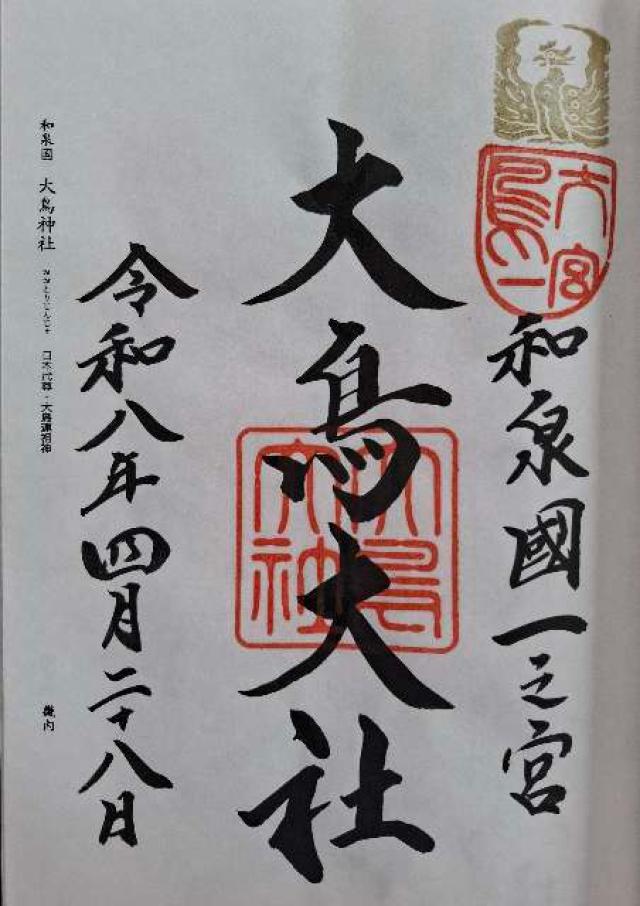 大鳥
一宮
和泉國一之宮
大鳥大社
大鳥大社
令和八年四月二十八日
和泉国 大鳥神社 おおとりじんじゃ 日本武尊・大鳥連祖神
畿内